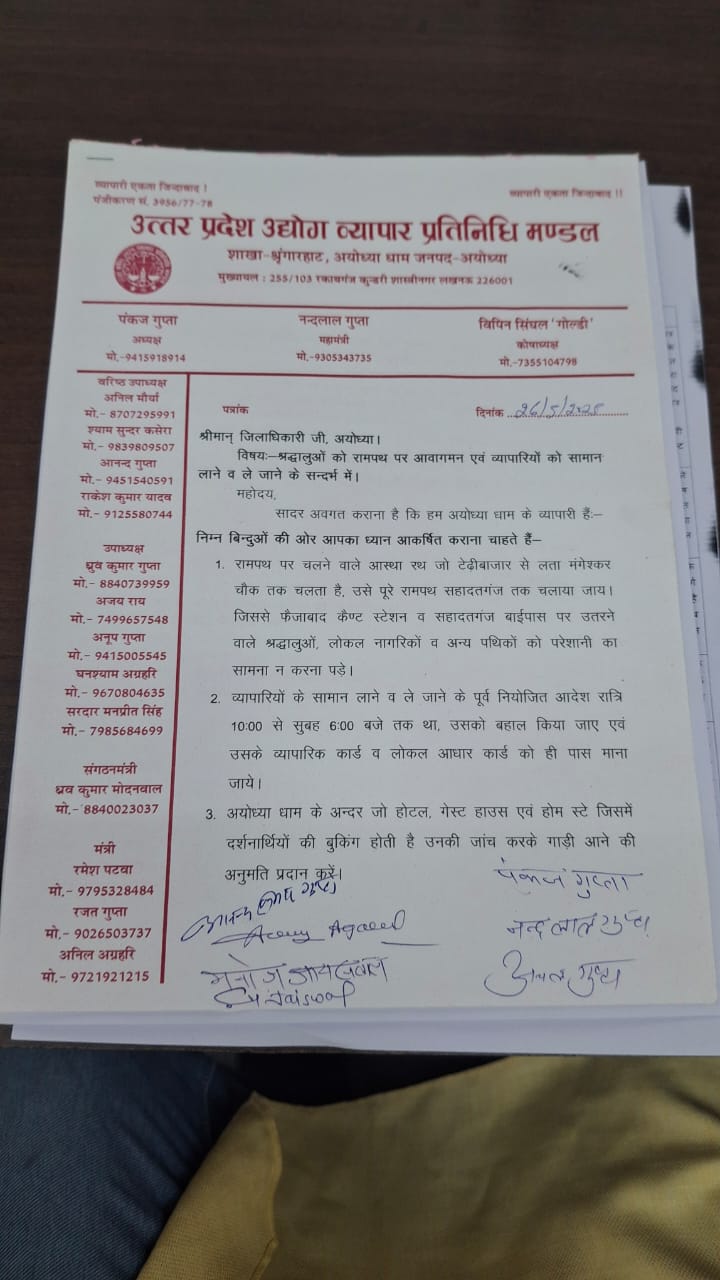 व्यापारी एकता जिन्दाबाद !
व्यापारी एकता जिन्दाबाद !!
पंजीकरण सं. 3956/77-78
उत्तर प्रदेश उद्योग व्यापार प्रतिनिधि मण्डल
शाखा-श्रृंगारहाट, अयोध्या धाम जनपद-अयोध्या
मुख्यायल : 255/103 रकाबगंज कुन्डरी शास्त्रीनगर लखनऊ 226001
पंकज गुप्ता
अध्यक्ष
मो.-9415918914
नन्दलाल गुप्ता
महामंत्री
मो.-9305343735
विपिन सिंघल 'गोल्डी'
कोषाध्यक्ष
मो.-7355104798
वरिष्ठ उपाध्यक्ष
अनिल मौर्या
मो.- 8707295991
श्याम सुन्दर कसेरा
मो.- 9839809507
आनन्द गुप्ता
मो.- 9451540591
राकेश कुमार यादव
मो.- 9125580744
उपाध्यक्ष
ध्रुव कुमार गुप्ता
मो.- 8840739959
अजय राय
मो.- 7499657548
अनूप गुप्ता
मो.- 9415005545
घनश्याम अग्रहरि
मो.- 9670804635
सरदार मनप्रीत सिंह
मो.- 7985684699
संगठनमंत्री
ध्रव कुमार मोदनवाल
मो.- 8840023037
मंत्री
रमेश पटवा
मो.- 9795328484
रजत गुप्ता
मो.- 9026503737
अनिल अग्रहरि
मो.- 9721921215
पत्रांक
दिनांक ..26/5/2025..............
श्रीमान् जिलाधिकारी जी, अयोध्या।
विषयः–श्रद्धालुओं को रामपथ पर आवागमन एवं व्यापारियों को सामान
लाने व ले जाने के सन्दर्भ में।
महोदय,
सादर अवगत कराना है कि हम अयोध्या धाम के व्यापारी हैंः–
निम्न बिन्दुओं की ओर आपका ध्यान आकर्षित कराना चाहते हैं–
1. रामपथ पर चलने वाले आस्था रथ जो टेढ़ीबाजार से लता मंगेश्कर
चौक तक चलता है, उसे पूरे रामपथ सहादतगंज तक चलाया जाय।
जिससे फैजाबाद कैण्ट स्टेशन व सहादतगंज बाईपास पर उतरने
वाले श्रद्धालुओं, लोकल नागरिकों व अन्य पथिकों को परेशानी का
सामना न करना पड़े।
2. व्यापारियों के सामान लाने व ले जाने के पूर्व नियोजित आदेश रात्रि
10:00 से सुबह 6:00 बजे तक था, उसको बहाल किया जाए एवं
उसके व्यापारिक कार्ड व लोकल आधार कार्ड को ही पास माना
जाये।
3. अयोध्या धाम के अन्दर जो होटल, गेस्ट हाउस एवं होम स्टे जिसमें
दर्शनार्थियों की बुकिंग होती है उनकी जांच करके गाड़ी आने की
अनुमति प्रदान करें।
पंकज गुप्ता
नन्द लाल गुप्ता
मनोज जायसवाल
Jaiswal
गुप्ता